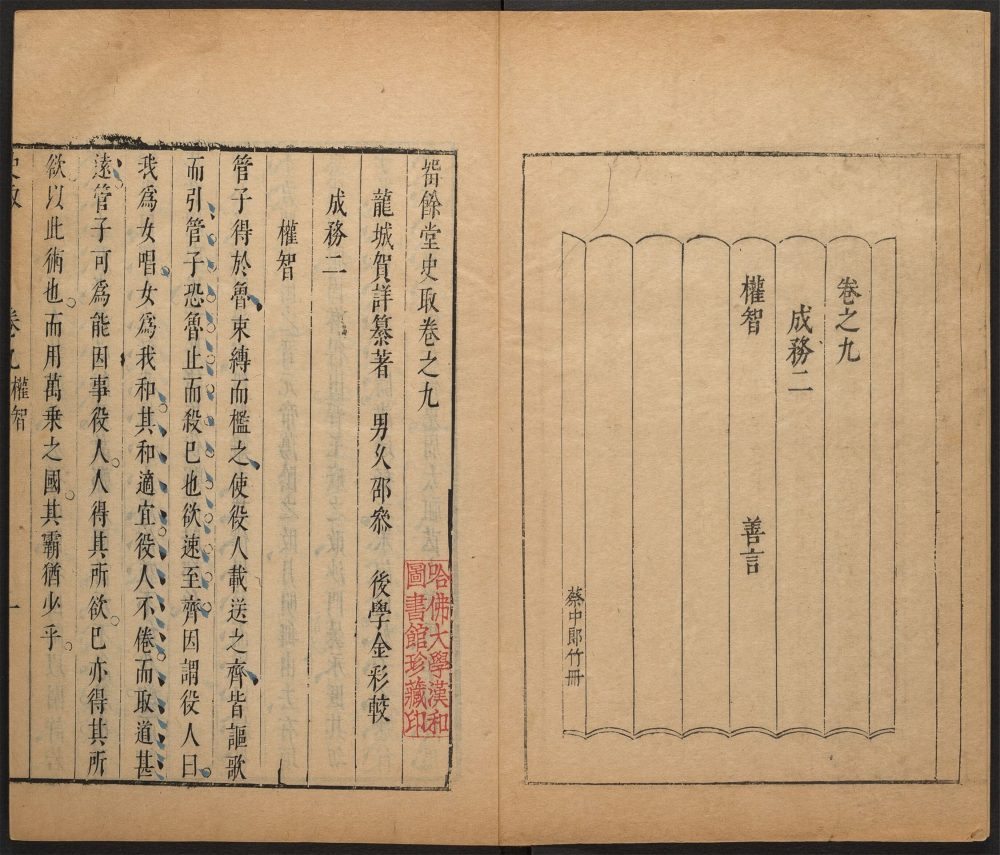 卷之九
成務二
權智　善言
蔡中郎竹冊
留餘堂史取卷之九
龍城賀詳纂著　男久邵叅　後學金彩較
哈佛大學漢和
圖書館珍藏印
成務二
權智
管子得於魯束縛而檻之使役人載送之齊皆謳歌
而引管子恐魯止而殺巳也欲速至齊因謂役人曰
我爲女唱女爲我和其和適宜役人不倦而取道甚
遠管子可爲能因事役人人得其所欲巳亦得其所
欲以此術也而用萬乗之國其霸猶少乎
史取　卷九權智　一